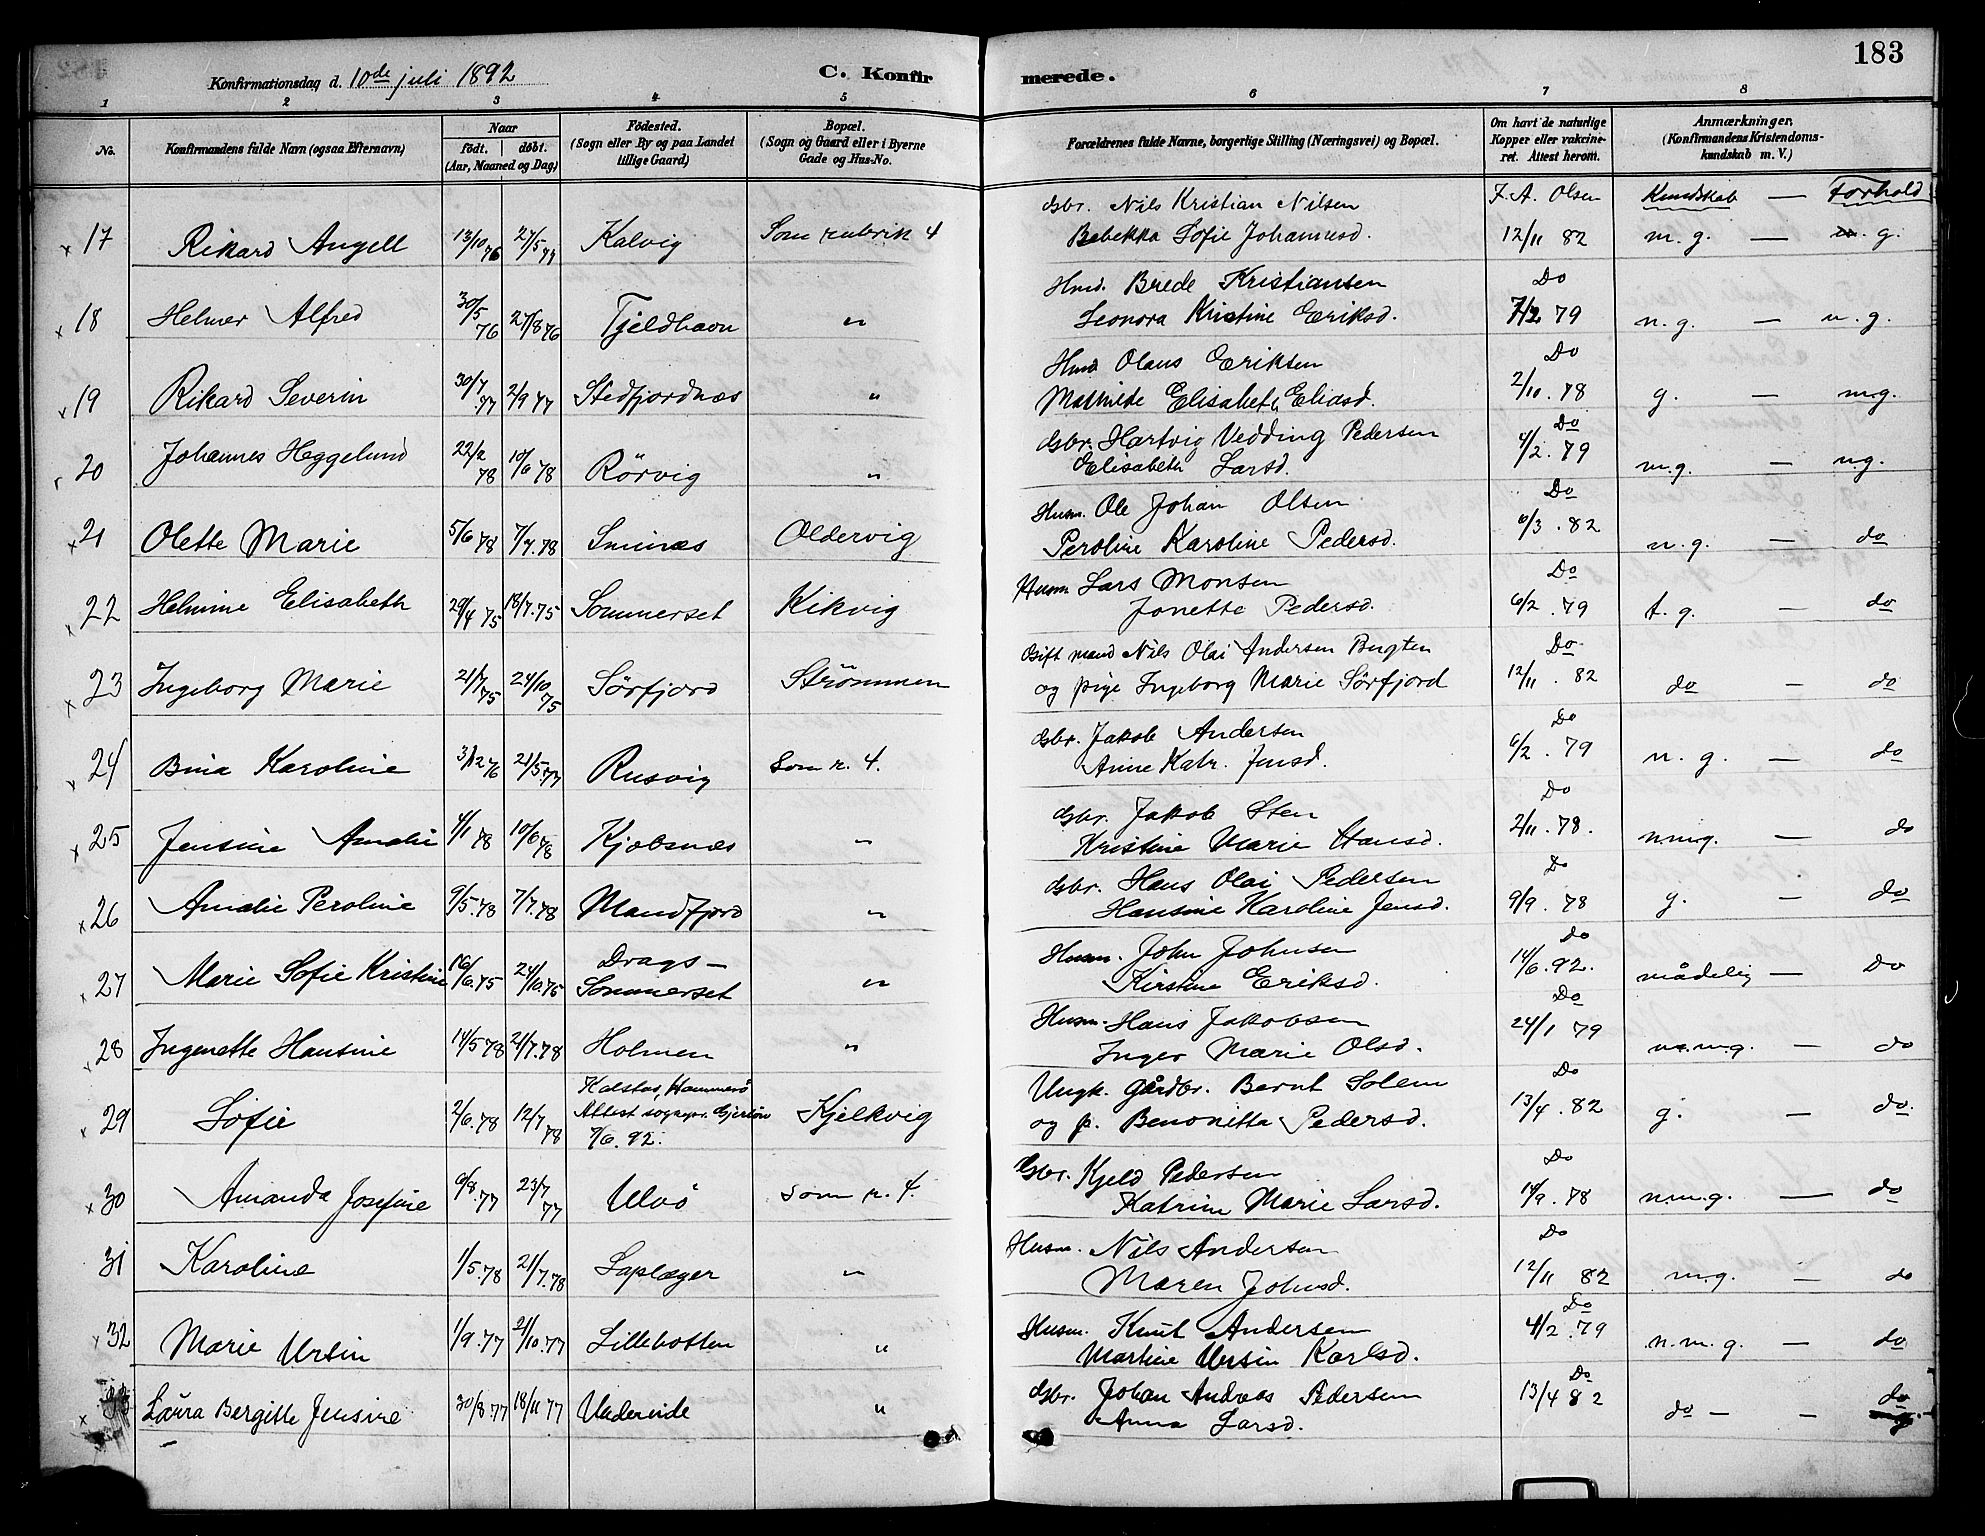 183
Konfirmationsdag d. 10de juli 1892
C. Konfirmerede.
1 2 3 4 5 6 7 8
No.
Konfirmandens fulde Navn (ogsaa Efternavn)
Naar
født. døbt.
(Aar, Maaned og Dag)
Fødested.
(Sogn eller By og paa Landet
tillige Gaard)
Bopæl.
(Sogn og Gaard eller i Byerne
Gade og Hus-No.
Forældrenes fulde Navne, borgerlige Stilling (Næringsvei) og Bopæl.
Om havt de naturlige
Kopper eller vakcine-
ret. Attest herom.
Anmærkninger.
(Konfirmandens Kristendoms-
kundskab m. V.)
Gbr. Nils Kristian Nilsen F. A. Olsen Kundskab — Forhold
x 17 Rikard Angell 13/10 76 27/5 77 Kalvig Som rubrik 4 Bebekka Sofie Johannesd. 12/11 82 m. g. — g.
Husm. Brede Kristiansen Do
x 18 Helmer Alfred 30/5 76 27/8 76 Tjeldhavn " Leonora Kristine Eriksd. 7/2 79 n. g. — n. g.
Husm. Olaus Eriksen Do
x 19 Rikard Severin 30/7 77 2/9 77 Stedfjordnæs " Mathilde Elisabeth Eliasd. 2/10. 78 g. — m.g.
Gbr. Hartvig Vedding Pedersen Do
20 Johannes Heggelund 22/2 78 10/6 78 Rørvig " Elisabeth Larsd. 4/2. 79 m.g. — n.g.
Husm. Ole Johan Olsen Do
x 21 Olette Marie 5/6 78 7/7.78 Smines Oldervig Peroline Karoline Pedersd. 6/3. 82 n.g. — do
Husm Lars Monsen Do
x 22 Helmine Elisabeth 29/4 75 18/7.75 Sommerset Kikvig Jonette Pedersd. 6/2. 79 t. g. — do
Gift mand Nils Olai Andersen Bugten Do
x 23 Ingeborg Marie 21/7 75 24/10 75 Sörfjord Strömmen og pige Ingeborg Marie Sörfjord 12/11. 82 do — do
Gbr. Jakob Andersen Do
x 24 Bina Karoline 3/12 76 21/5.77 Rusvig Som r. 4. Anne Katr. Jensd. 6/2. 79 n. g. — do
Gbr. Jakob Sten Do
x 25 Jensine Amalie 4/1 78 10/6 78 Kjøbsnæs " Kristine Marie Hansd. 2/11. 78. n.m.g. — do
Gbr. Hans Olai Pedersen Do
x 26 Amalie Peroline 9/5.78 7/7.78 Mandfjord " Hansine Karoline Jensd. 9/9. 78 g. — do
Husm. John Johnsen Do
x 27 Marie Sofie Kristine 16/6.75 24/10.75 Drags-
Sommerset " Kirstine Eriksd. 14/6.92. mådelig — Do
Husm. Hans Jakobsen Do
x 28 Ingenette Hansine 14/5 78 21/7.78 Holmen " Inger Marie Olsd. 24/1 79 n.m.g. — do
Ungk. gårdbr. Bernt Solem Do
x 29 Sofie 2/6.78 12/7 78 Kalstad, Hammerö
Attest sognepr. Gjerlöw
7/6. 92. Kjelkvig og p. Benonitta Pedersd. 13/4. 82 g. — do.
Gbr. Kjeld Pedersen Do
x 30 Amanda Josefine 9/8.77 23/7 77 Ulvö Som r. 4. Katrine Marie Larsd. 14/9. 78 n.m.g. — do
Husm. Nils Andersen Do
31 Karoline 1/5.78 21/7.78 Laplæger " Maren Johnsd. 12/11 82 m.g. — do
Husm. Knut Andersen Do
x 32 Marie Ursin 1/9.77 21/10.77 Lillebotten " Martine Ursin Karlsd. 4/2.79 n.m.g. — do
Gbr. Johan Andreas Pedersen Do
x 33 Laura Bergitte Jensine 30/8.77 18/11 77 Ædervide " Anna Larsd. 13/4 82 do — — do